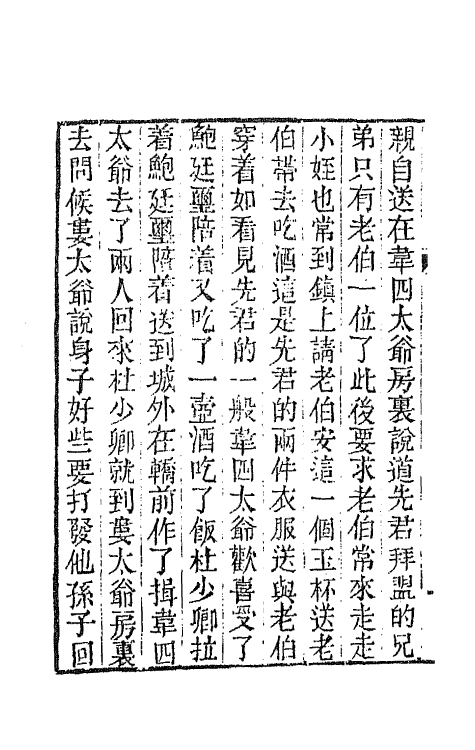 親自送在韋四太爺房裏說道先君拜盟的兄
弟只有老伯一位了此後要求老伯常來走走
小姪也常到鎮上請老伯安這一個玉杯送老
伯帶去吃酒這是先君的兩件衣服送與老伯
穿着如看見先君的一般韋四太爺歡喜受了
鮑廷璽陪着又吃了一壺酒吃了飯杜少卿拉
着鮑廷璽陪着送到城外在轎前作了揖韋四
太爺去了兩人回來杜少卿就到婁太爺房裏
去問候婁太爺說身子好些要打發他孫子回